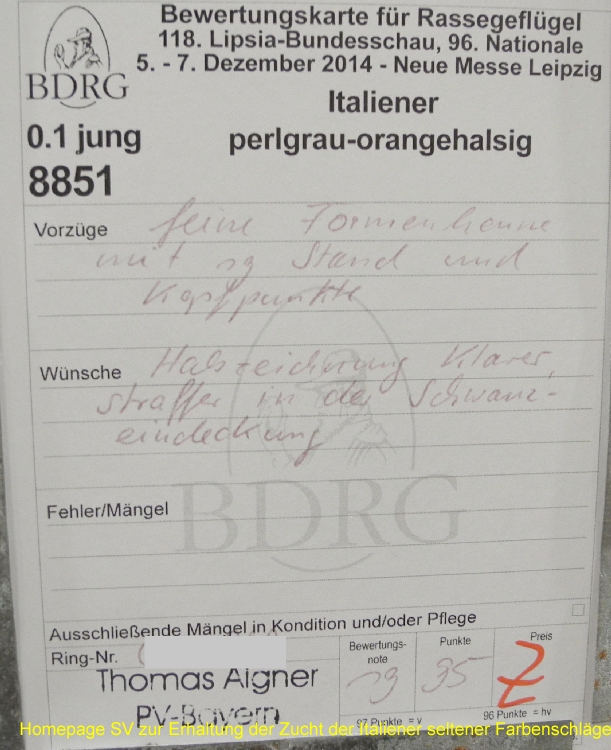 Bewertungskarte für Rassegeflügel
118. Lipsia-Bundesschau, 96. Nationale
5. - 7. Dezember 2014 - Neue Messe Leipzig
BDRG
Italiener
0.1 jung perlgrau-orangehalsig
8851
Vorzüge feine Formenhenne
mit sg Stand und
Kopfpunkte
Wünsche Halszeichnung klarer,
straffer in der Schwanz-
eindeckung
BDRG
Fehler/Mängel
Ausschließende Mängel in Kondition und/oder Pflege
Ring-Nr. Bewertungs-note Punkte Preis
sg 95 Z
Thomas Aigner
PV-Bayern
97 Punkte = v 96 Punkte = hv
Homepage SV zur Erhaltung der Zucht der Italiener seltener Farbenschläge